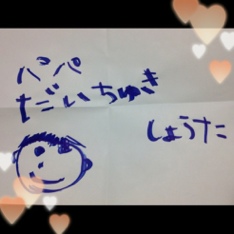 パパ
だいちゅき
しょうた